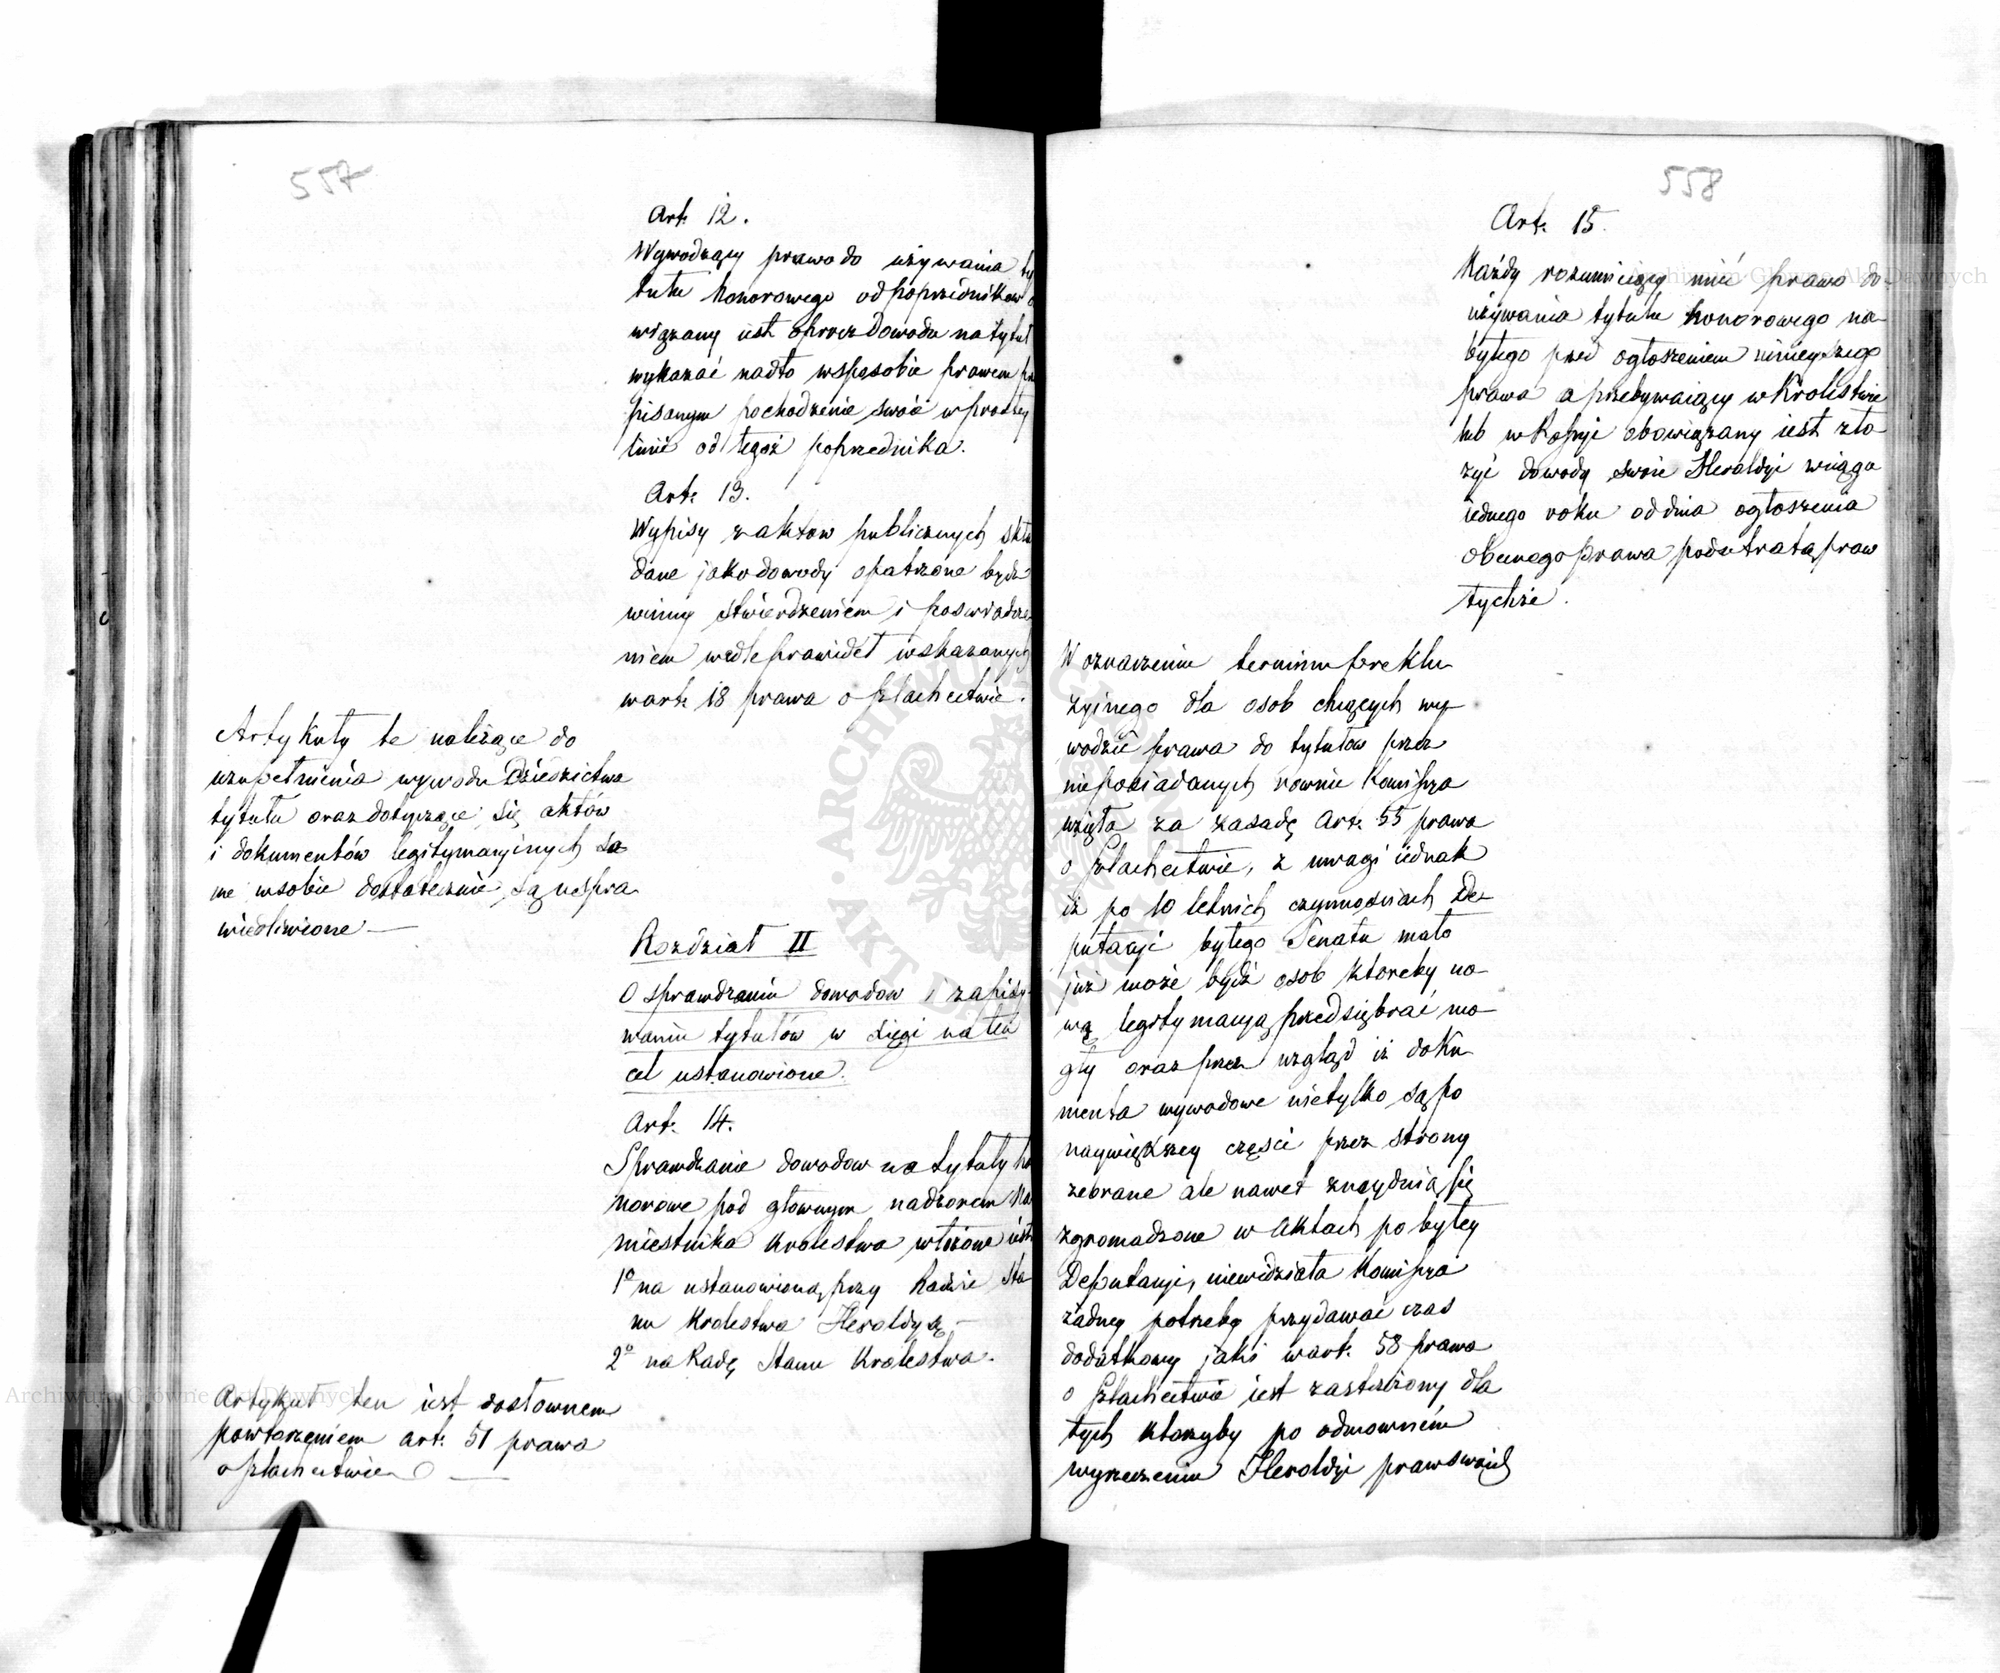 557
Art: 12.
Wywodzący prawo do używania ty
tułu honorowego od poprzedników o
wiązany iest oprocz dowodu na tytuł
wykazać nadto wsposobie prawem prze
pisanym pochodzenie swoie w prostey
linii od tegoż poprzednika.
Art: 13.
Wypisy z aktow publicznych skła
dane jako dowody opatrzone bydź
winny stwierdzeniem i poswiadcze
niem wedle prawideł wskazanych
w art: 18 prawa o szlachectwie.
Artykuły te należące do
uzupełnienia wywodu dziedzictwa
tytułu oraz dotyczące się aktów
i dokumentów legitymacyjnych sa
me wsobie dostatecznie są uspra
wiedliwione —
Rozdział II
O sprawdzaniu dowodow i zapisy-
waniu tytułów w xięgi na ten
cel ustanowione.
Art: 14.
Sprawdzanie dowodow na tytuły ho
norowe pod głownym nadzorem Na
miestnika Krolestwa włożone iest
1º na ustanowioną przy Radzie Sta
nu Krolestwa Heroldyą —
2º na Radę Stanu Królestwa.
Artykuł ten iest dosłownem
powtorzeniem art: 51 prawa
o szlachectwie —
558
Art: 15.
Każdy rozumieiący mieć prawo do-
używania tytułu honorowego na-
bytego przed ogłoszeniem ninieyszego
prawa a przebywaiący w Krolestwie
lub w Rossyi obowiązany iest zło-
żyć dowody swoie Heroldyi wciągu
iednego roku od dnia ogłoszenia
obecnego prawa pod utratą praw
tychże.
W oznaczeniu terminu preklu-
zyinego dla osob chcących wy-
wodzić prawa do tytułow przez
nie posiadanych rownie Kommissya
wzięła za zasadę Art: 55 prawa
o Szlachectwie, z uwagi iednak
iż po 10 letnich czynnosciach De-
putacyi byłego Senatu mało
już może bydź osob ktoreby no-
wą legitymacyą przedsiębrać mo-
gły oraz przez wzgląd iż doku-
menta wywodowe nietylko są po
naywiększey części przez strony
zebrane ale nawet znayduią się
zgromadzone w Aktach po byłey
Deputacyi, niewidziała Kommissya
żadney potrzeby przydawać czas
dodatkowy jaki w art: 58 prawa
o Szlachectwie iest zastrzeżony dla
tych ktorzyby po odmowném
wyrzeczeniu Heroldyi praw swoich
Archiwum Główne Akt Dawnych
Archiwum Główne Akt Dawnych